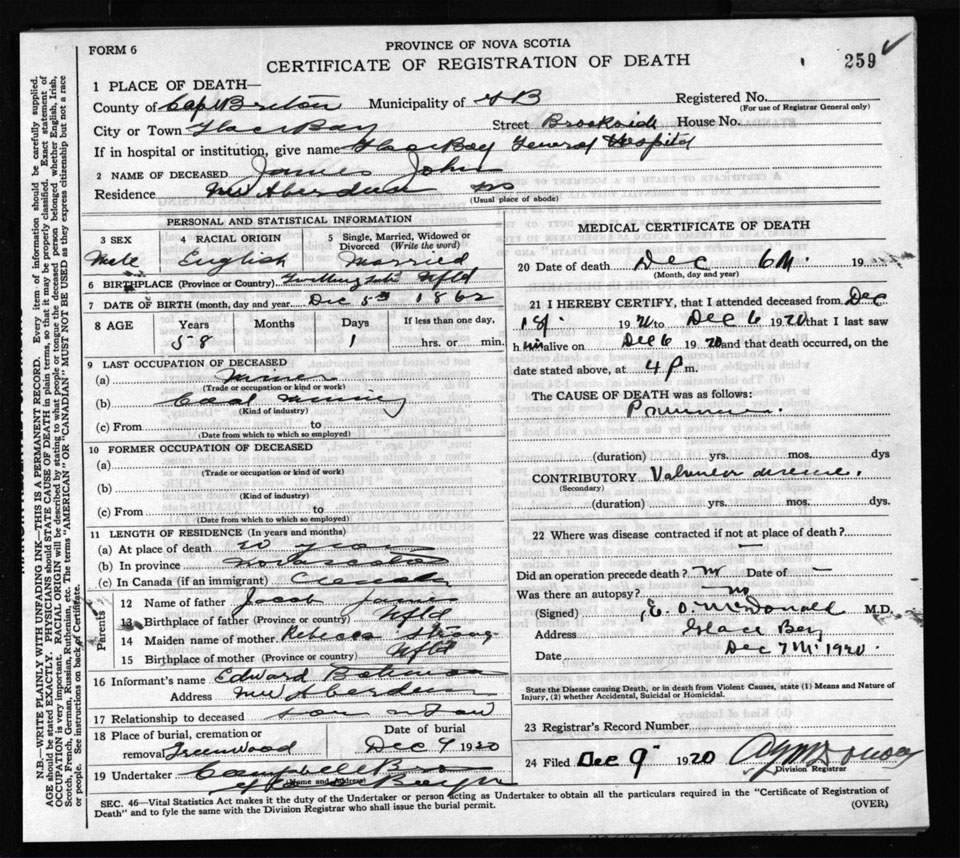 FORM 6
PROVINCE OF NOVA SCOTIA
CERTIFICATE OF REGISTRATION OF DEATH
259
1 PLACE OF DEATH—
County of Cape Breton Municipality of Registered No.
(For use of Registrar General only)
City or Town Glace Bay Street Brookside House No.
If in hospital or institution, give name Glace Bay General Hospital
2 NAME OF DECEASED James John
Residence New Aberdeen
(Usual place of abode)
PERSONAL AND STATISTICAL INFORMATION
3 SEX
Male
4 RACIAL ORIGIN
English
5 Single, Married, Widowed or Divorced (Write the word)
Married
6 BIRTHPLACE (Province or Country) Nfld
7 DATE OF BIRTH (month, day and year) Dec 5th 1862
8 AGE Years Months Days If less than one day,
58 1 hrs. or min.
9 LAST OCCUPATION OF DECEASED
(a) Miner
(Trade or occupation or kind or work)
(b) Coal Mining
(Kind of industry)
(c) From to
(Date from which to which so employed)
10 FORMER OCCUPATION OF DECEASED
(a)
(Trade or occupation or kind of work)
(b)
(Kind of industry)
(c) From to
(Date from which to which so employed)
11 LENGTH OF RESIDENCE (In years and months)
(a) At place of death years
(b) In province Nova Scotia
(c) In Canada (if an immigrant) Canada
Parents
12 Name of father Jacob James
13 Birthplace of father (Province or country) Nfld
14 Maiden name of mother Rebecca Strong
15 Birthplace of mother (Province or country) Nfld
16 Informant's name Edward
Address New Aberdeen
17 Relationship to deceased son in law
18 Place of burial, cremation or removal Greenwood
Date of burial
Dec 9 1920
19 Undertaker Campbell Bros
Name and Address
Glace Bay
MEDICAL CERTIFICATE OF DEATH
20 Date of death Dec 6th 19
(Month, day and year)
21 I HEREBY CERTIFY, that I attended deceased from Dec
1st 1920 to Dec 6 1920 that I last saw
him alive on Dec 6 1920 and that death occurred, on the
date stated above, at 4 p m.
The CAUSE OF DEATH was as follows:
Pneumonia.
(duration) yrs. mos. dys
CONTRIBUTORY Valvular disease.
(Secondary)
(duration) yrs. mos. dys.
22 Where was disease contracted if not at place of death?
—
Did an operation precede death? no Date of —
Was there an autopsy? no
(Signed) McDonald M.D.
Address Glace Bay
Date Dec 7th 1920.
State the Disease causing Death, or in death from Violent Causes, state (1) Means and Nature of
Injury, (2) whether Accidental, Suicidal or Homicidal.
23 Registrar's Record Number
24 Filed Dec 9 1920
Division Registrar
SEC. 46—Vital Statistics Act makes it the duty of the Undertaker or person acting as Undertaker to obtain all the particulars required in the "Certificate of Registration of
Death" and to fyle the same with the Division Registrar who shall issue the burial permit.
(OVER)
N.B.—WRITE PLAINLY WITH UNFADING INK—THIS IS A PERMANENT RECORD. Every item of information should be carefully supplied.
AGE should be stated EXACTLY. PHYSICIANS should STATE CAUSE OF DEATH in plain terms, so that it may be properly classified. Exact statement of
OCCUPATION is very important. RACIAL ORIGIN will be described by stating to what people or tongue the deceased person belonged, whether English, Irish,
Scotch, French, German, Russian, Ruthenian, etc. The terms "AMERICAN" OR "CANADIAN" MUST NOT BE USED as they express citizenship but not a race
or people. See instructions on back of Certificate.